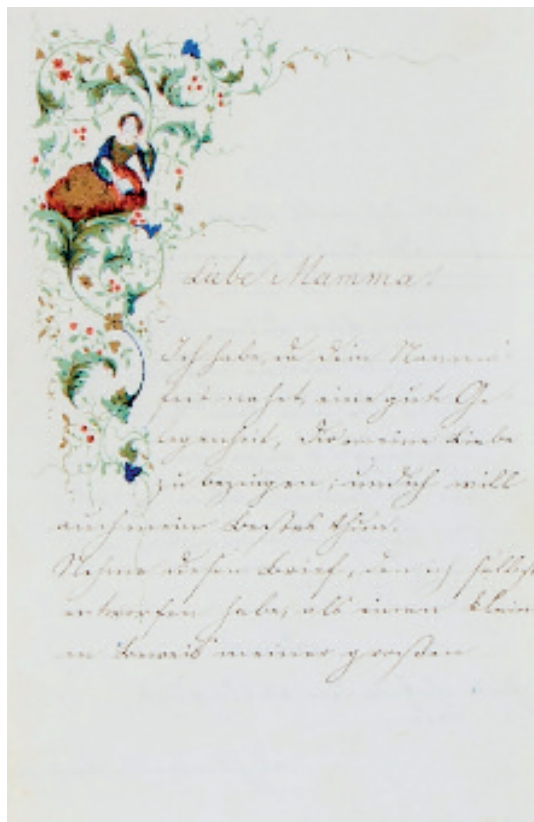 Liebe Mamma!
Ich habe, da Dein Namens-
fest nahet, eine gute Ge-
legenheit, Dir meine Liebe
zu bezeugen; und ich will
auch mein Bestes thun.
Nehme diesen Brief, den ich selbst
entworfen habe, als einen klein
en Beweis meiner großen